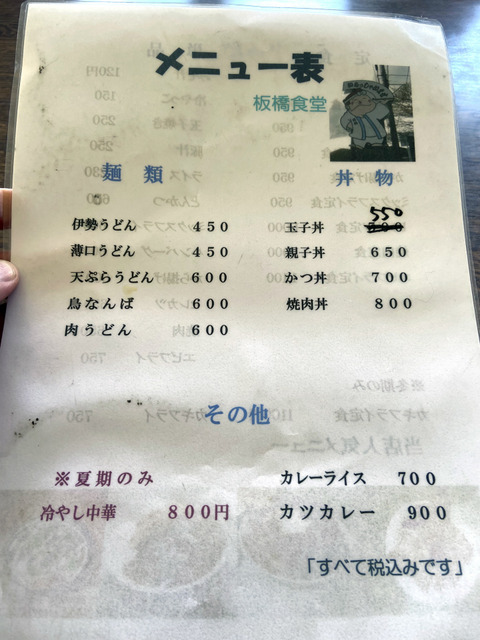 メニュー表
板橋食堂
麺類
伊勢うどん 450
薄口うどん 450
天ぷらうどん 600
鳥なんば 600
肉うどん 600
丼物
550
玉子丼
親子丼 650
かつ丼 700
焼肉丼 800
その他
※夏期のみ
冷やし中華 800円
カレーライス 700
カツカレー 900
「すべて税込みです」